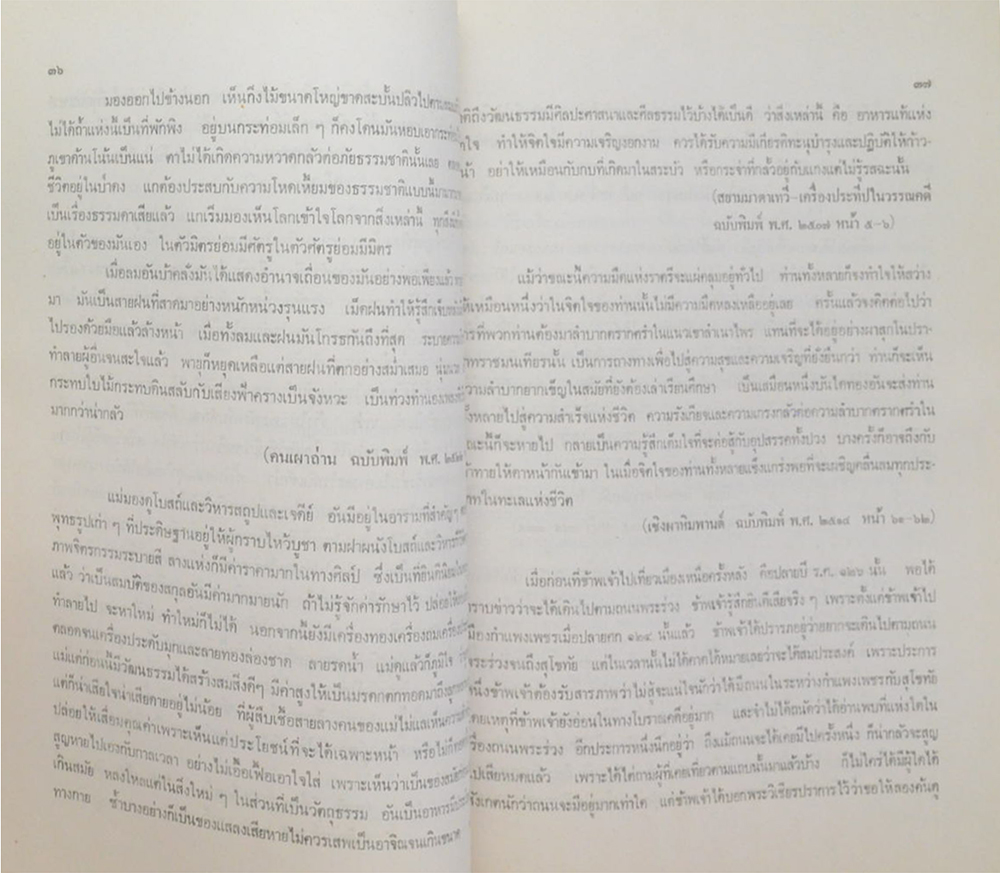 ๓๖
มองออกไปข้างนอก เห็นกิ่งไม้ขนาดใหญ่ขาดสะบั้นปลิวไป
ไม่ได้ถ้ำแห่งนี้เป็นที่พักพิง อยู่บนกระท่อมเล็ก ๆ ก็คงโดนมันหอบเอากระท่อม
ภูเขาด้านโน้นเป็นแน่ ตาไม่ได้เกิดความหวาดกลัวต่อภัยธรรมชาตินั้นเลย
ชีวิตอยู่ในป่าดง แกต้องประสบกับความโหดเหี้ยมของธรรมชาติแบบนี้
เป็นเรื่องธรรมดาเสียแล้ว แกเริ่มมองเห็นโลกเข้าใจโลกจากสิ่งเหล่านี้
อยู่ในตัวของมันเอง ในตัวมิตรย่อมมีศัตรูในตัวศัตรูย่อมมีมิตร
เมื่อลมอันบ้าคลั่งมันได้แสดงอำนาจเถื่อนของมันอย่างพอเพียงแล้ว
มา มันเป็นสายฝนที่สาดมาอย่างหนักหน่วงรุนแรง เม็ดฝนทำให้รู้สึกเจ็บ
ไปรองด้วยมือแล้วล้างหน้า เมื่อทั้งลมและฝนมันโกรธกันถึงที่สุด
ทำลายผู้อื่นจนสะใจแล้ว พายุก็หยุดเหลือแต่สายฝนที่ตกอย่างสม่ำเสมอ
กระทบใบไม้กระทบดินสลับกับเสียงฟ้าครางเป็นจังหวะ เป็นท่วงทำนองเพลง
มากกว่าน่ากลัว
(คนเผาถ่าน ฉบับพิมพ์ พ.ศ.
แม่มองดูโบสถ์และวิหารสถูปและเจดีย์ อันมีอยู่ในอารามที่สำคัญๆ
พุทธรูปเก่า ๆ ที่ประดิษฐานอยู่ให้ผู้กราบไหว้บูชา ตามฝาผนังโบสถ์และวิหาร
ภาพจิตรกรรมระบายสี ลางแห่งก็มีค่าราคามากในทางศิลป์ ซึ่งเป็นที่ยินดีนิยม
แล้ว ว่าเป็นสมบัติของสกุลอันมีค่ามากมายนัก ถ้าไม่รู้จักค่ารักษาไว้ ปล่อยให้
ทำลายไป จะหาใหม่ ทำใหม่ก็ไม่ได้ นอกจากนี้ยังมีเครื่องทองเครื่องถม
ตลอดจนเครื่องประดับมุกและลายทองล่องชาด ลายรดน้ำ แม่ดูแล้วก็ภูมิใจ
แม่แต่ก่อนนี้มีวัฒนธรรมได้สร้างสมสิ่งดีๆ มีค่าสูงให้เป็นมรดกตกทอดมาถึง
แต่ก็น่าเสียใจน่าเสียดายอยู่ไม่น้อย ที่ผู้สืบเชื้อสายลางคนของแม่ไม่แลเห็น
ปล่อยให้เสื่อมคุณค่าเพราะเห็นแต่ประโยชน์ที่จะได้เฉพาะหน้า หรือไม่ก็
สูญหายไปเองกับกาลเวลา อย่างไม่เอื้อเฟื้อเอาใจใส่ เพราะเห็นว่าเป็นของ
เกินสมัย หลงใหลแต่ในสิ่งใหม่ ๆ ในส่วนที่เป็นวัตถุธรรม อันเป็นอาหาร
ทางกาย ซ้ำบางอย่างก็เป็นของแสลงเสียหายไม่ควรเสพเป็นอาจิณจนเกินขนาด
๓๗
คิดถึงวัฒนธรรมมีศิลปะศาสนาและศีลธรรมไว้บ้างได้เป็นดี ว่าสิ่งเหล่านี้ คือ อาหารแท้แห่ง
ทำให้จิตใจมีความเจริญงอกงาม ควรได้รับความมีเกียรติทะนุบำรุงและปฏิบัติให้ก้าว-
อย่าให้เหมือนกับกบที่เกิดมาในสระบัว หรือกระจ่าที่กลั้วอยู่กับแกงแต่ไม่รู้รสฉะนั้น
(สยามมาดาเทวี-เครื่องประทีปในวรรณคดี
ฉบับพิมพ์ พ.ศ. ๒๕๐๗ หน้า ๕-๖)
แม้ว่าขณะนี้ความมืดแห่งราตรีจะแผ่คลุมอยู่ทั่วไป ท่านทั้งหลายก็จงทำใจให้สว่าง
เหมือนหนึ่งว่าในจิตใจของท่านนั้นไม่มีความมืดหลงเหลืออยู่เลย ครั้นแล้วจงคิดต่อไปว่า
การที่พวกท่านต้องมาลำบากตรากตรำในแนวเขาลำเนาไพร แทนที่จะได้อยู่อย่างผาสุกในปรา-
เป็นการถางทางเพื่อไปสู่ความสุขและความเจริญที่ยั่งยืนกว่า ท่านก็จะเห็น
ความลำบากยากเข็ญในสมัยที่ยังต้องเล่าเรียนศึกษา เป็นเสมือนหนึ่งบันไดทองอันจะส่งท่าน
ทั้งหลายไปสู่ความสำเร็จแห่งชีวิต ความรังเกียจและความเกรงกลัวต่อความลำบากตรากตรำใน
ขณะนี้ก็จะหายไป กลายเป็นความรู้สึกเต็มใจที่จะต่อสู้กับอุปสรรคทั้งปวง บางครั้งก็อาจถึงกับ
ท้าทายให้ดาหน้ากันเข้ามา ในเมื่อจิตใจของท่านทั้งหลายแข็งแกร่งพอที่จะเผชิญคลื่นลมทุกประ-
เภทในทะเลแห่งชีวิต
(เชิงผาหิมพานต์ ฉบับพิมพ์ พ.ศ. ๒๕๑๔ หน้า ๖๑-๖๒)
เมื่อก่อนที่ข้าพเจ้าไปเที่ยวเมืองเหนือครั้งหลัง คือปลายปี ร.ศ. ๑๒๖ นั้น พอได้
ทราบข่าวว่าจะได้เดินไปตามถนนพระร่วง ข้าพเจ้ารู้สึกยินดีเสียจริง ๆ เพราะตั้งแต่ข้าพเจ้าไป
เมืองกำแพงเพชรเมื่อปลายศก ๑๒๔ นั้นแล้ว ข้าพเจ้าได้ปรารภอยู่ว่าอยากจะเดินไปตามถนน
พระร่วงจนถึงสุโขทัย แต่ในเวลานั้นไม่ได้คาดได้หมายเลยว่าจะได้สมประสงค์ เพราะประการ
หนึ่งข้าพเจ้าต้องรับสารภาพว่าไม่สู้จะแน่ใจนักว่าได้มีถนนในระหว่างกำแพงเพชรกับสุโขทัย
ด้วยเหตุที่ข้าพเจ้ายังอ่อนในทางโบราณคดีอยู่มาก และจำไม่ได้ถนัดว่าได้อ่านพบที่แห่งใดใน
เรื่องถนนพระร่วง อีกประการหนึ่งนึกอยู่ว่า ถึงแม้ถนนจะได้เคยมีไปครั้งหนึ่ง ก็น่ากลัวจะสูญ
ไปเสียหมดแล้ว เพราะได้ไต่ถามผู้ที่เคยเที่ยวตามแถบนั้นมาแล้วบ้าง ก็ไม่ใคร่ได้มีผู้ใดได้
สังเกตนักว่าถนนจะมีอยู่มากเท่าใด แต่ข้าพเจ้าได้บอกพระวิเชียรปราการไว้ว่าขอให้ลองค้นดู